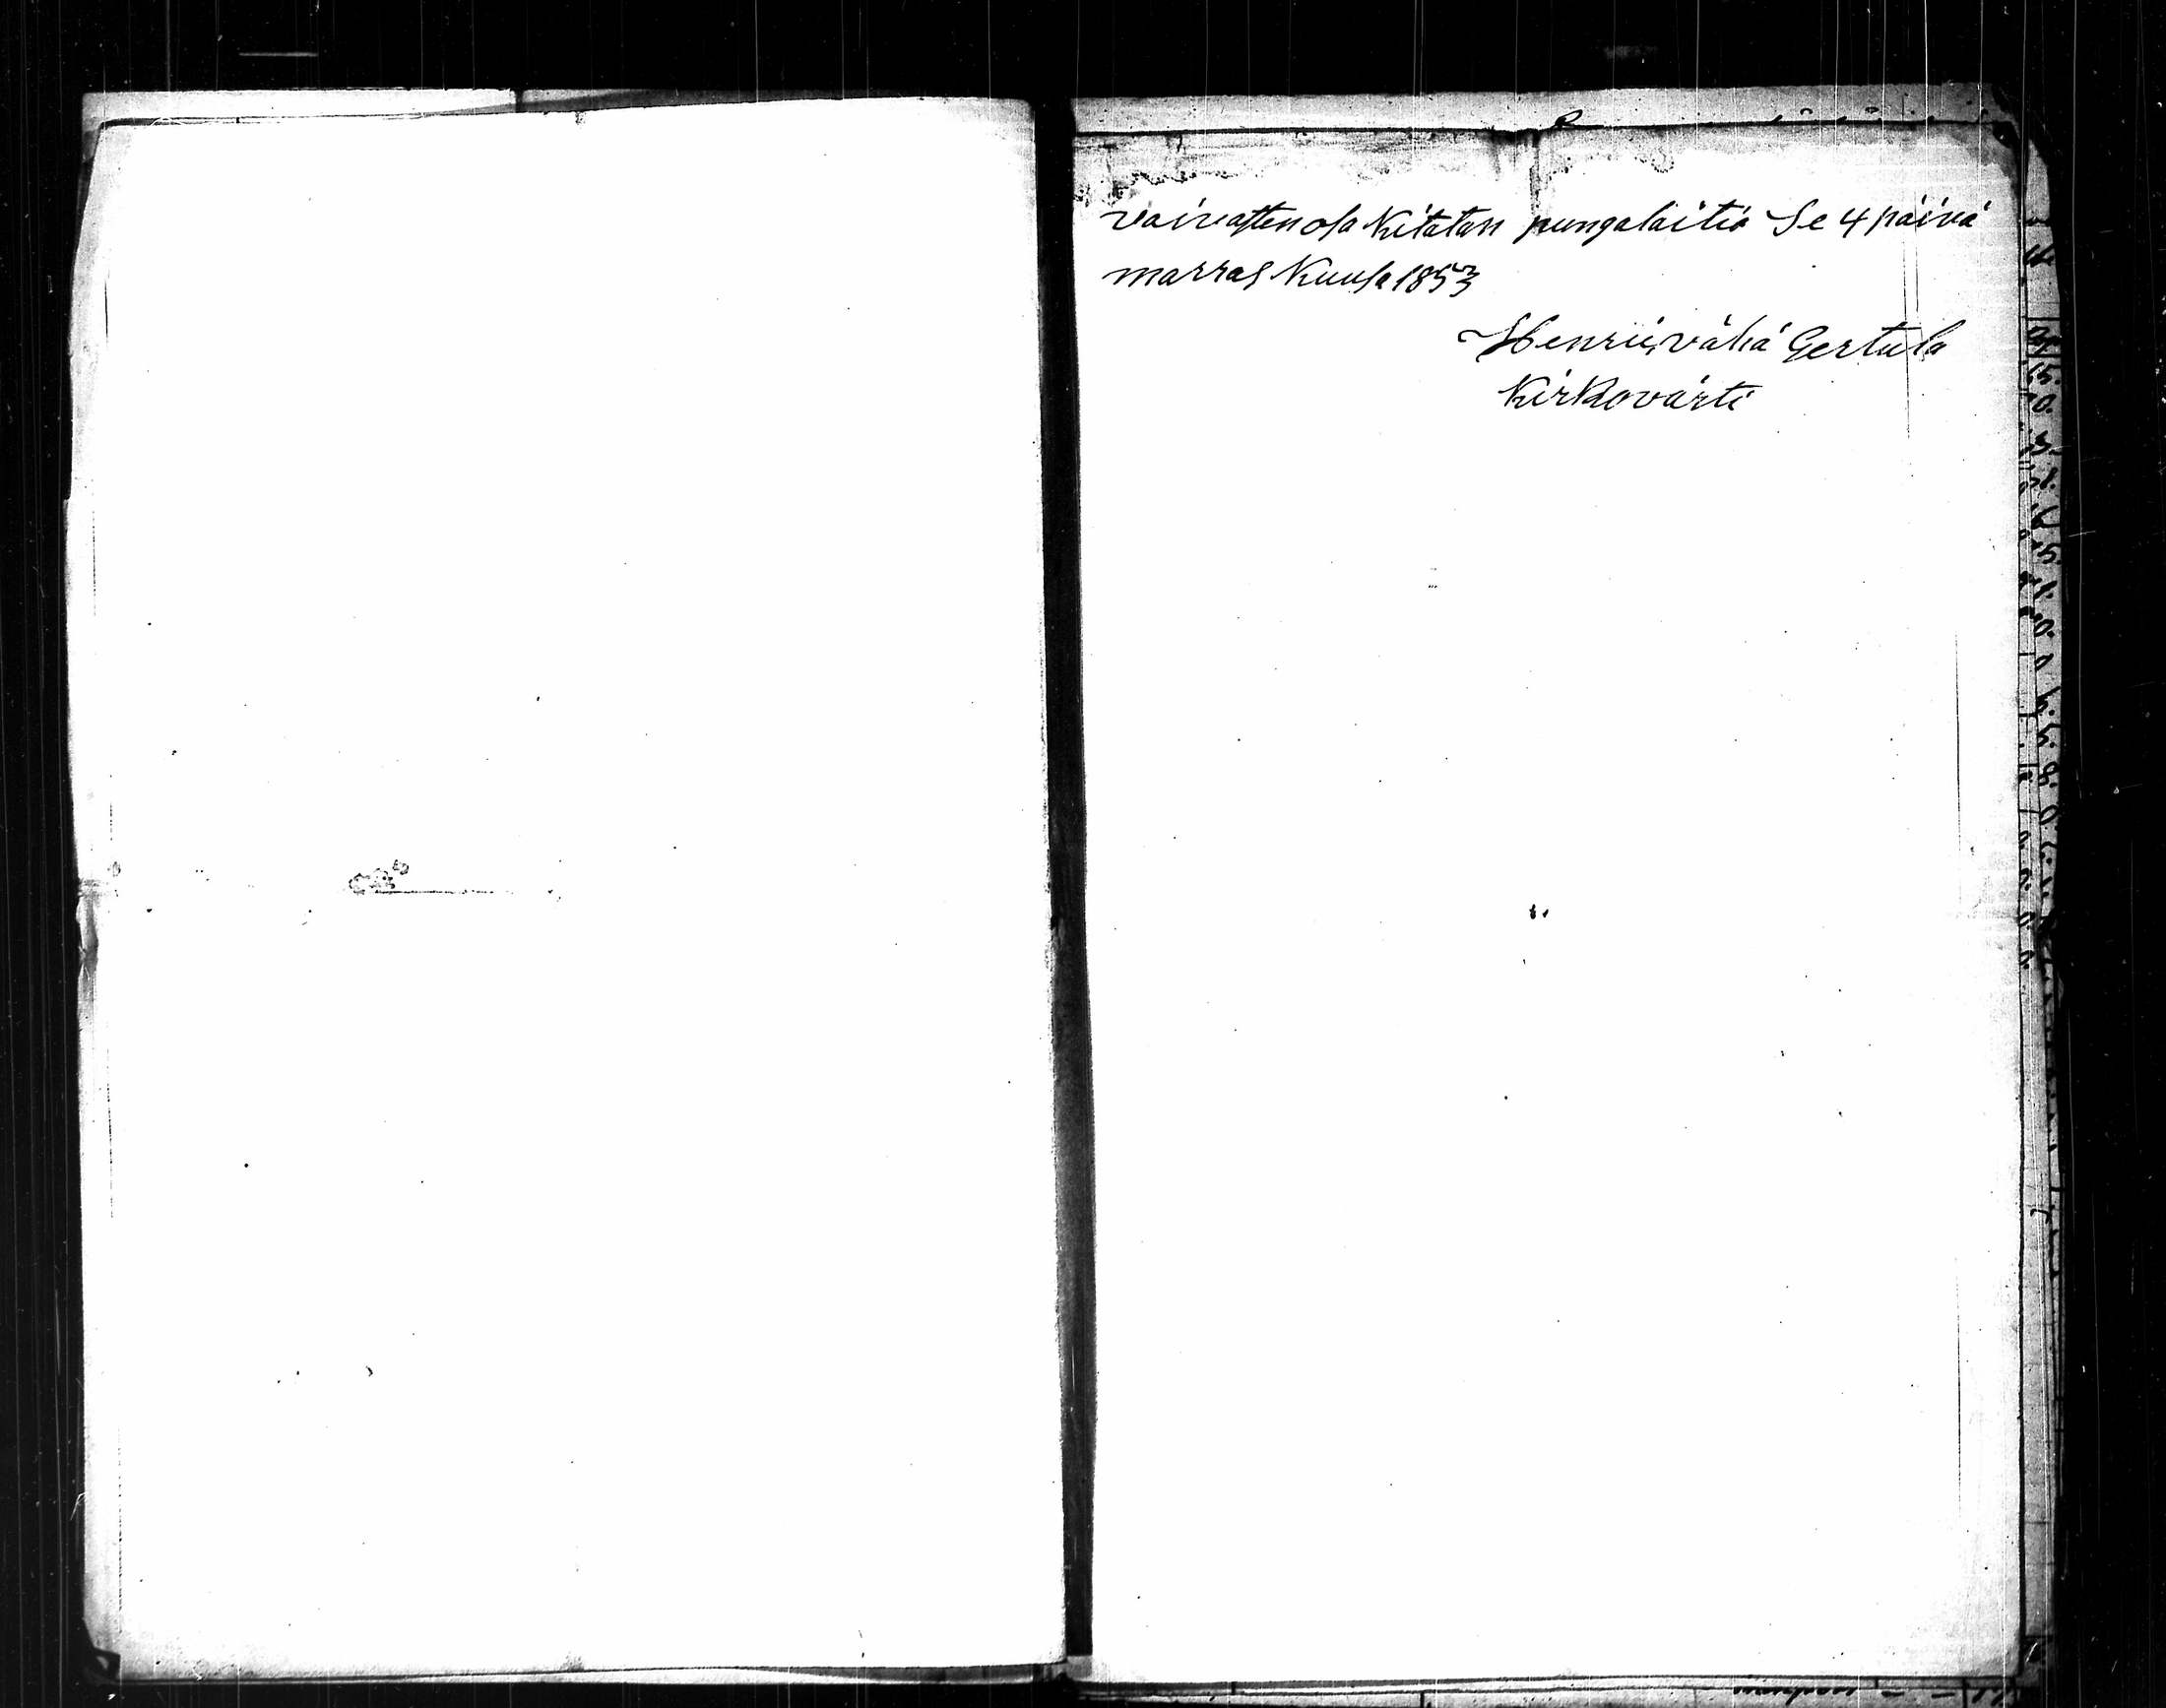 vaivasten osa Kitatan pungalaitio Se 4 päivä
marras Kuusa 1853
Henrii, vähä Gertula
Kirkovärti